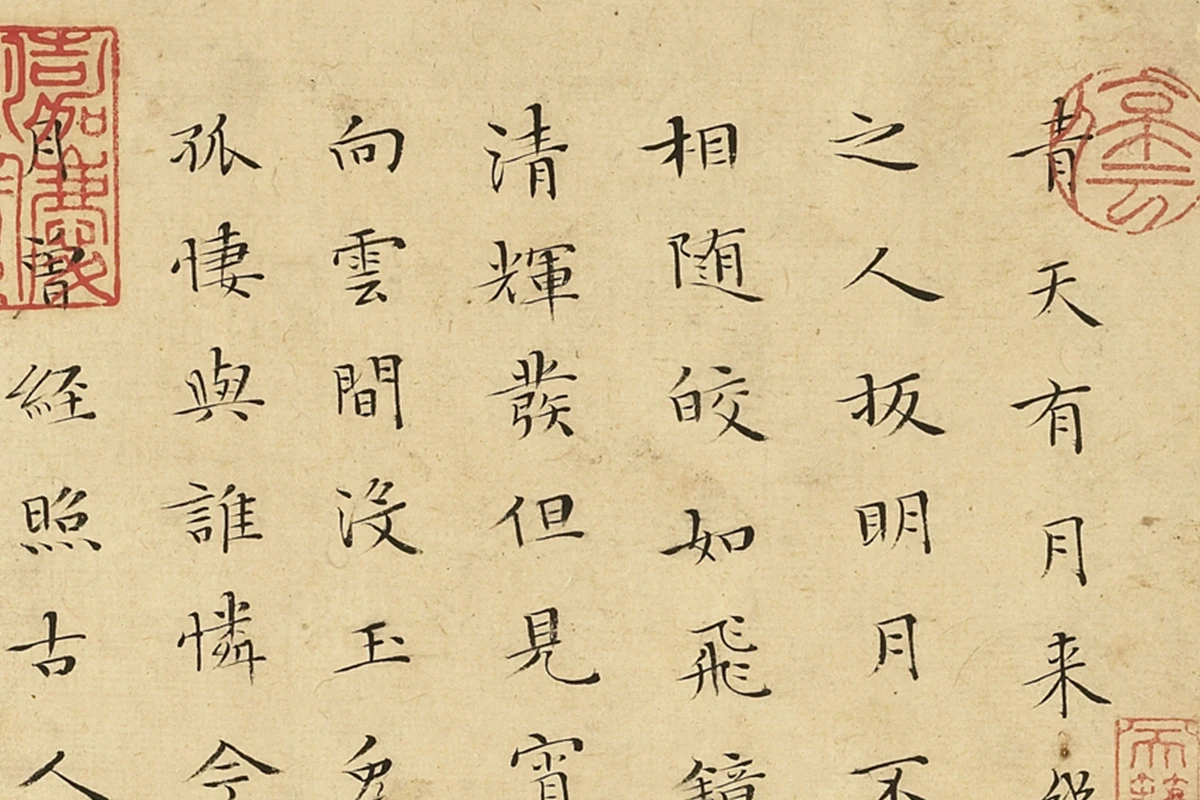 青天有月来
之人扳明月不
相随皎如飛鏡
清輝發但見宵
向雲間没玉兔
孤悽與誰憐今
月曾経照古人